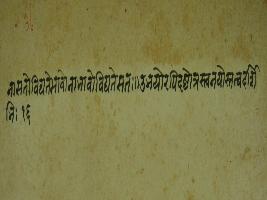 नासतोविद्यतेभावोनाभावोविद्यतेसतः॥उभयोरपिदृष्टोंतस्त्वनयोस्तत्वदर्शि
भिः १६